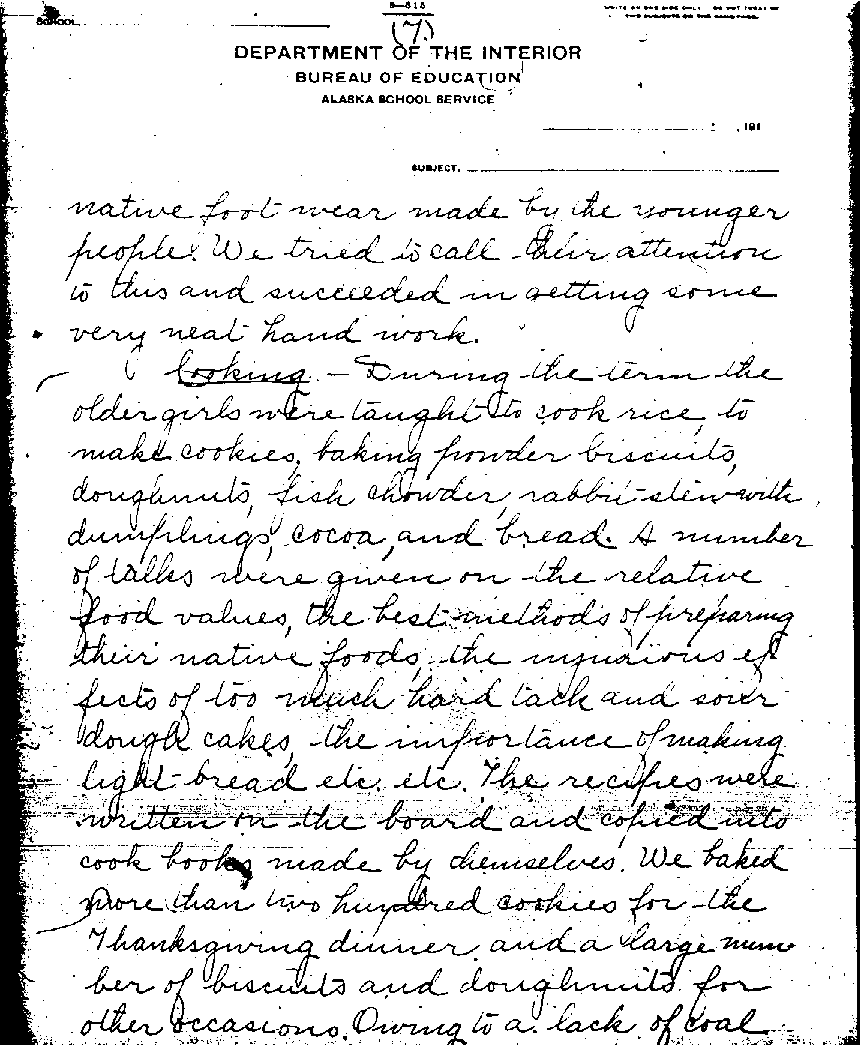 SCHOOL
8—815
WRITE ON ONE SIDE ONLY. DO NOT TREAT OF
TWO SUBJECTS ON THE SAME PAGE.
(7)
DEPARTMENT OF THE INTERIOR
BUREAU OF EDUCATION
ALASKA SCHOOL SERVICE
, 191
SUBJECT.
native foot wear made by the younger
people. We tried to call their attention
to this and succeeded in getting some
very neat hand work.
Cooking. — During the term the
older girls were taught to cook rice, to
make cookies, baking powder biscuits,
doughnuts, fish chowder, rabbit stew with
dumplings, cocoa, and bread. A number
of talks were given on the relative
food values, the best methods of preparing
their native foods, the injurious ef
fects of too much hard tack and sour
dough cakes, the importance of making
light bread etc. etc. The recipes were
written on the board and copied into
cook books made by themselves. We baked
more than two hundred cookies for the
Thanksgiving dinner and a large num
ber of biscuits and doughnuts for
other occasions. Owing to a lack of coal